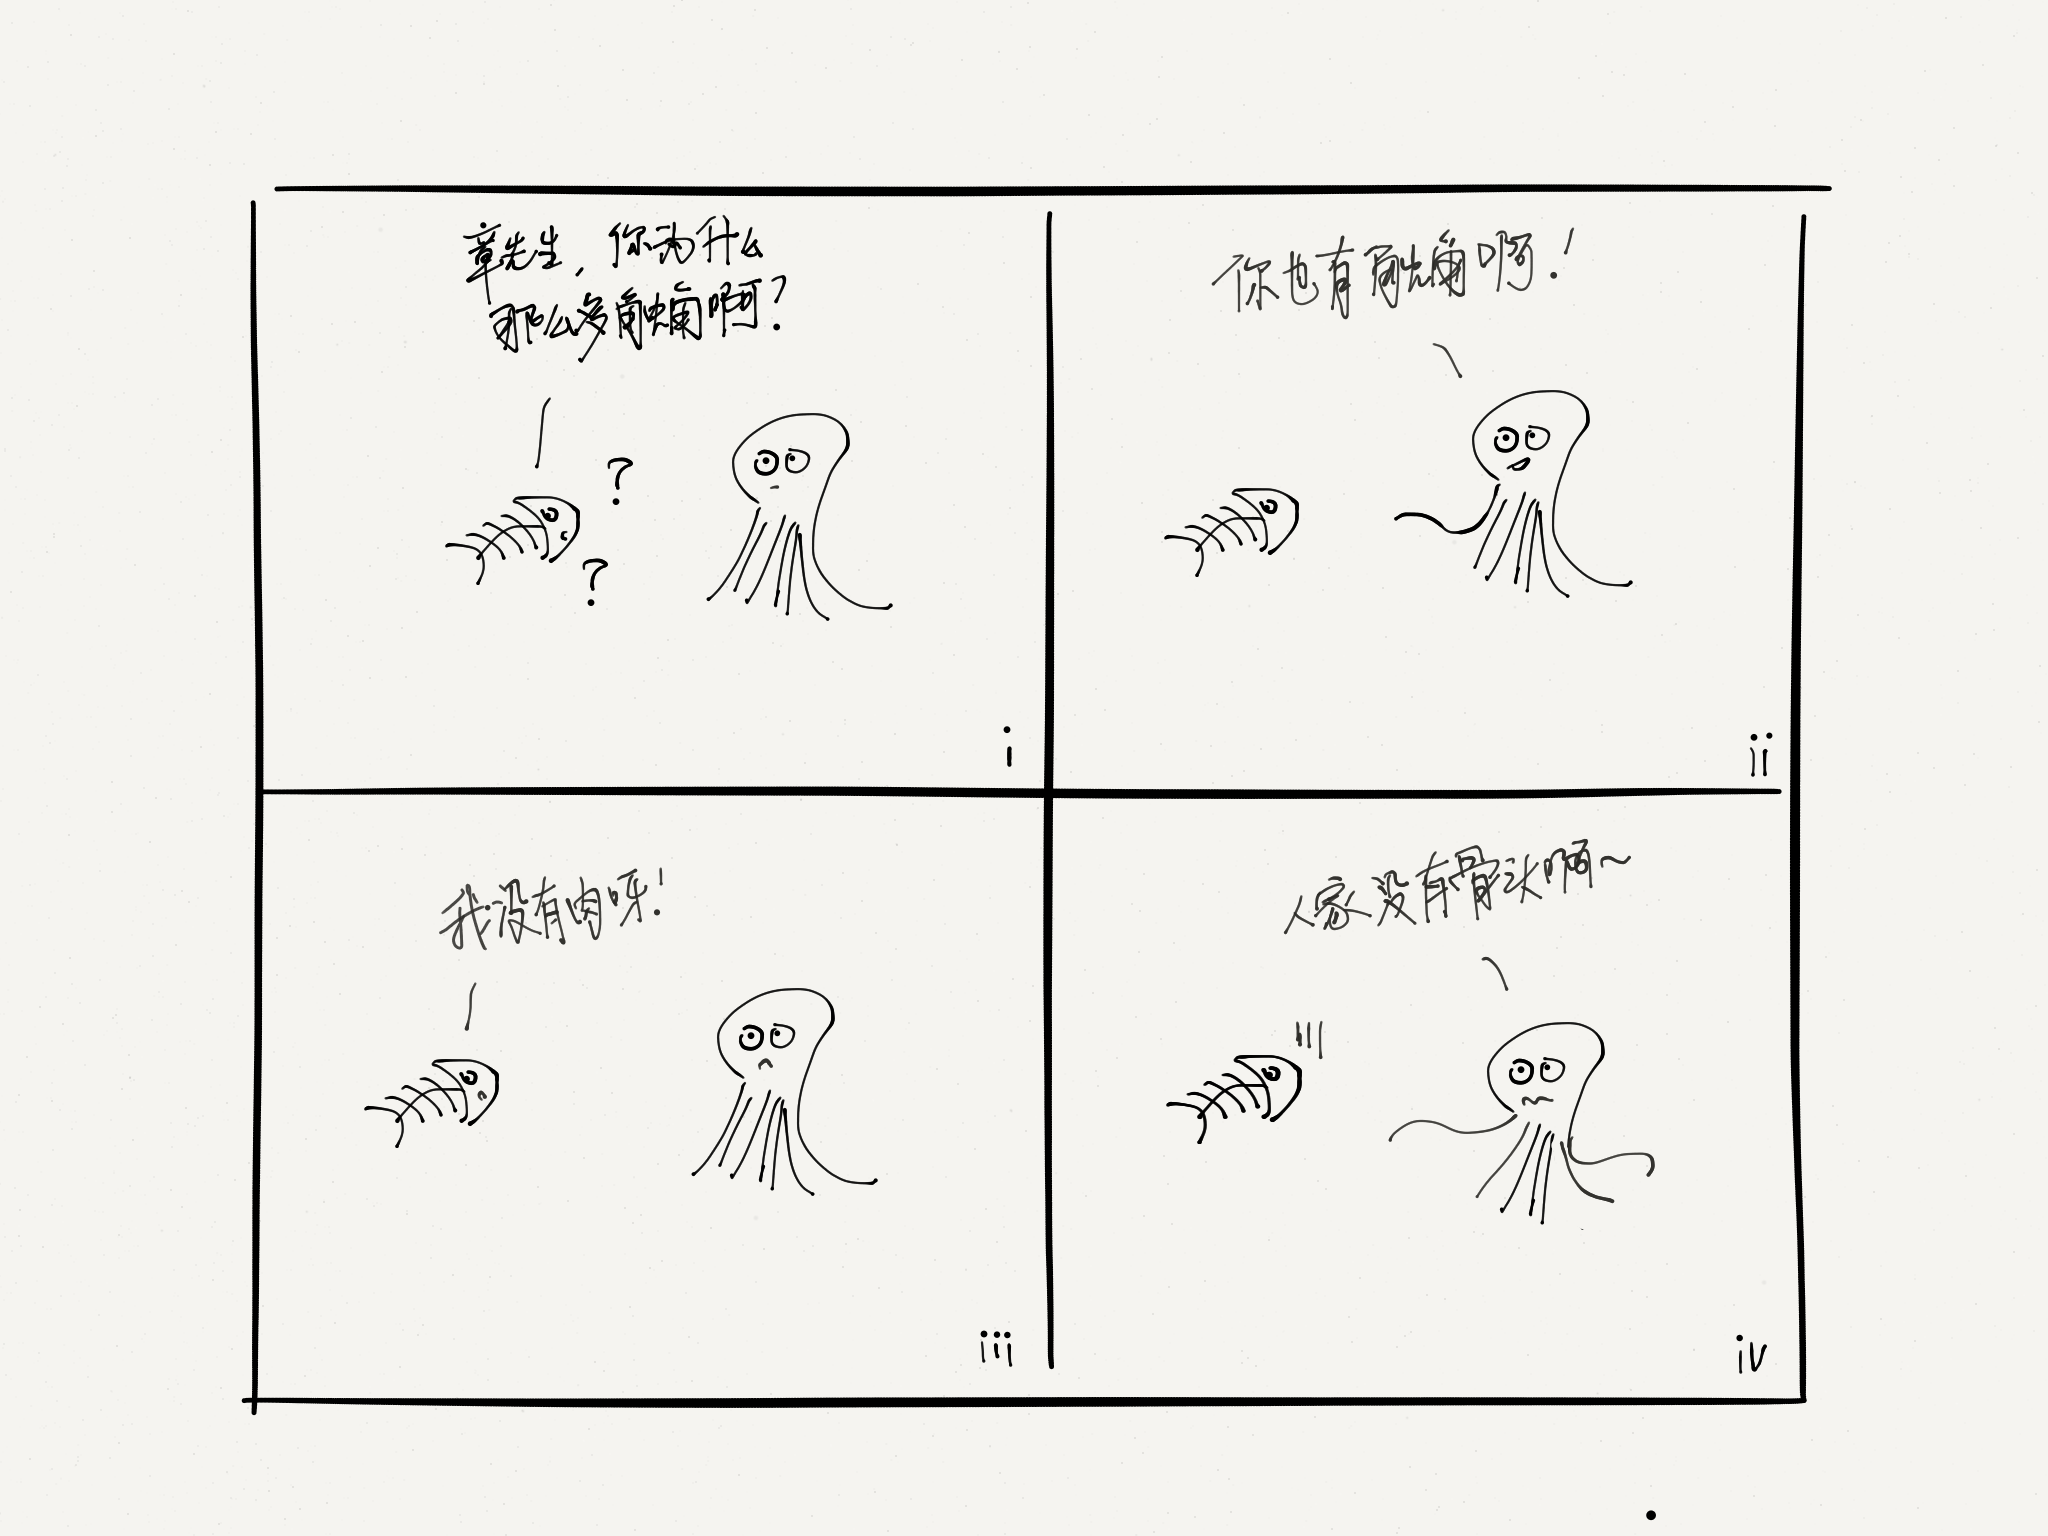 章先生，你为什么
那么多触角啊？
?
?
i
你也有触角啊！
ii
我没有肉呀！
iii
人家没有骨头啊～
iv